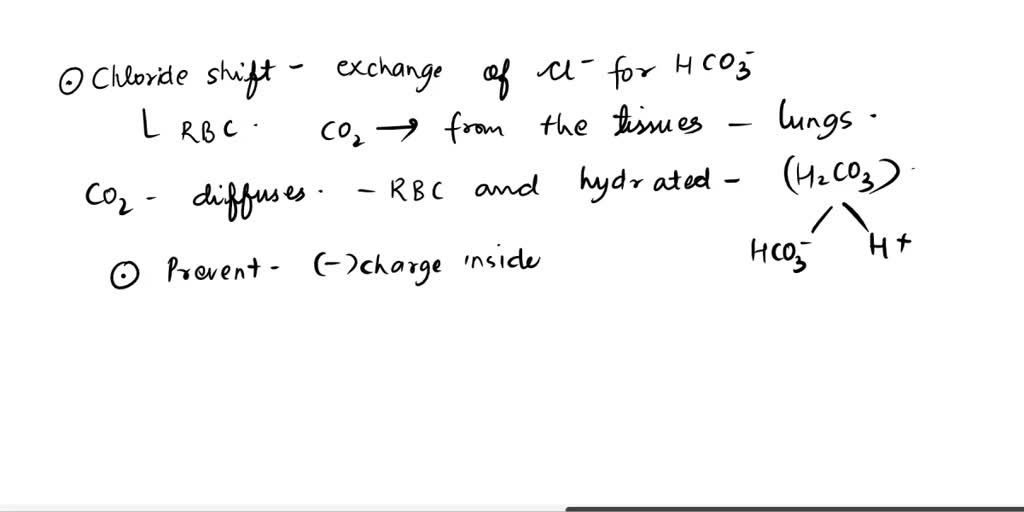 ⊙ Chloride shift - exchange of Cl⁻ for HCO₃⁻
L RBC. CO₂ → from the tissues - lungs.
CO₂ - diffuses. - RBC and hydrated - (H₂CO₃)
HCO₃⁻ H+
⊙ Prevent - (-)charge inside